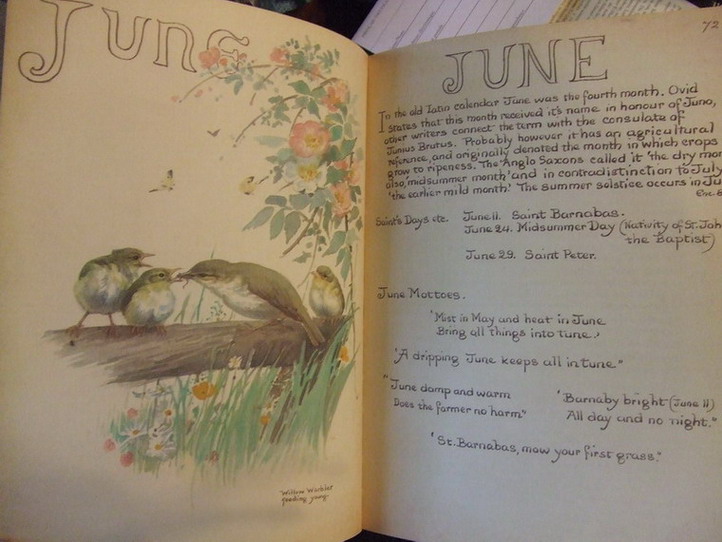 JUNE
Willow Warbler
feeding young.
72
JUNE
In the old Latin calendar June was the fourth month. Ovid
states that this month received it's name in honour of Juno,
other writers connect the term with the consulate of
Junius Brutus. Probably however it has an agricultural
reference, and originally denoted the month in which crops
grow to ripeness. The Anglo Saxons called it 'the dry mon
also, 'midsummer month' and in contradistinction to July
'the earlier mild month.' The summer solstice occurs in Ju
Saint's Days etc. June 11. Saint Barnabas.
June 24. Midsummer Day (Nativity of St. Joh
the Baptist)
June 29. Saint Peter.
June Mottoes.
'Mist in May and heat in June
Bring all things into tune.'
'A dripping June keeps all in tune"
"June damp and warm
Does the farmer no harm"
'Barnaby bright (June 11)
All day and no night."
'St. Barnabas, mow your first grass."